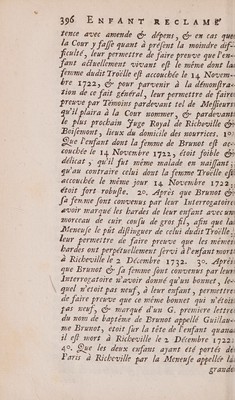 396 ENFANT RECLAMÉ
tence avec amende & dépens, & en cas que
la Cour y fasse quant à présent la moindre dif-
ficulté, leur permettre de faire preuve que l'en-
fant actuellement vivant est le même dont la
femme dudit Troëlle est accouchée le 14 Novem-
bre 1722, & pour parvenir à la démonstra-
tion de ce fait général, leur permettre de faire
preuve par Témoins pardevant tel de Messieurs
qu'il plaira à la Cour nommer, & pardevant
le plus prochain Juge Royal de Richeville &
Boisemont, lieux du domicile des nourrices. 10.
Que l'enfant dont la femme de Brunot est ac-
couchée le 14 Novembre 1722, étoit foible &
délicat, qu'il fut même malade en naissant;
qu'au contraire celui dont la femme Troëlle est
accouchée le même jour 14 Novembre 1722,
étoit fort robuste. 20. Après que Brunot &
sa femme sont convenus par leur Interrogatoire
avoir marqué les hardes de leur enfant avec un
morceau de cuir cousu de gros fil, afin que la
Meneuse le pût distinguer de celui dudit Troëlle,
leur permettre de faire preuve que les mêmes
hardes ont perpétuellement servi à l'enfant mort
à Richeville le 2 Décembre 1732. 30. Après
que Brunot & sa femme sont convenus par leur
Interrogatoire n'avoir donné qu'un bonnet, le-
quel n'étoit pas neuf, à leur enfant, permettre
de faire preuve que ce même bonnet qui n'étoit
pas neuf, & marqué d'un G. premiere lettre
du nom de baptême de Brunot appellé Guillau-
me Brunot, etoit sur la tête de l'enfant quand
il est mort à Richeville le 2 Décembre 1722:
40. Que les deux enfans ayant été portés de
Paris à Richeville par la Meneuse appellée la
grande